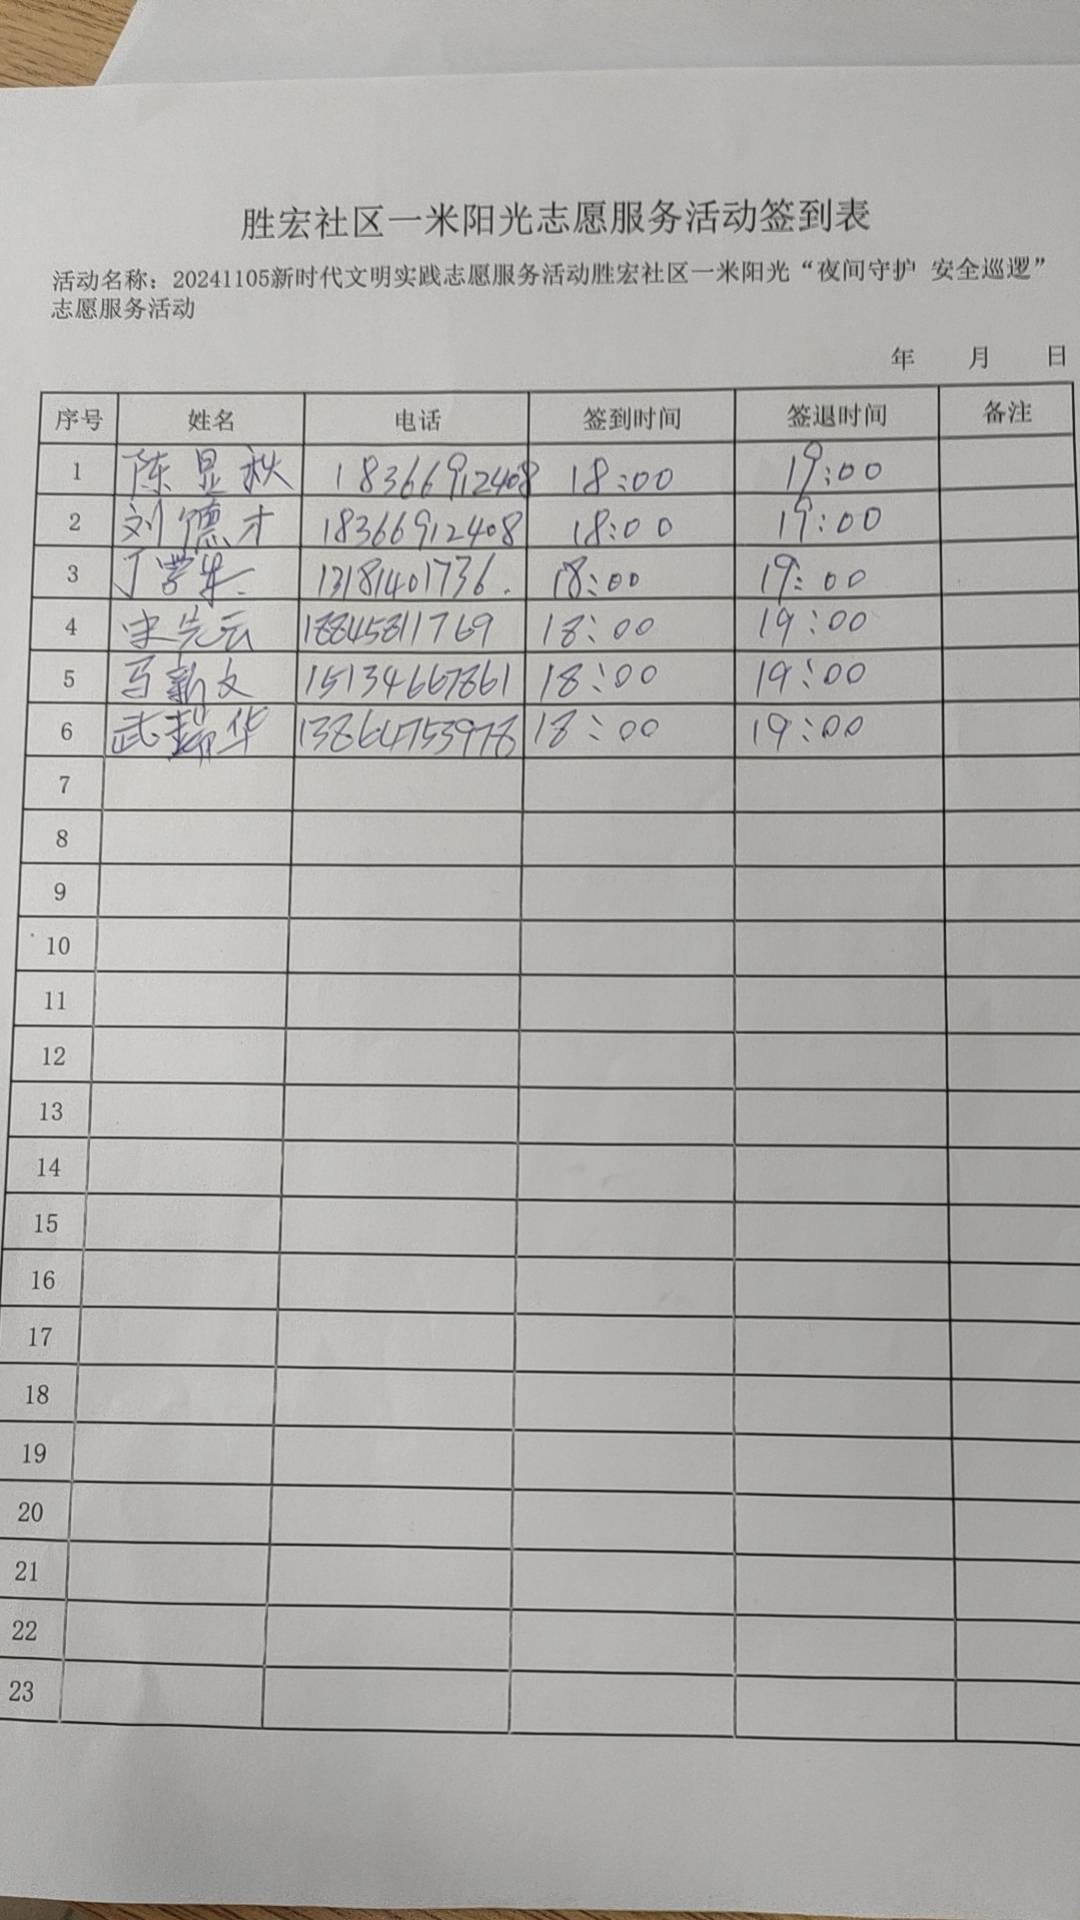 胜宏社区一米阳光志愿服务活动签到表
活动名称：20241105新时代文明实践志愿服务活动胜宏社区一米阳光“夜间守护 安全巡逻”
志愿服务活动
年 月 日
序号 姓名 电话 签到时间 签退时间 备注
1 陈显秋 18366912408 18:00 19:00
2 刘德才 18366912408 18:00 19:00
3 丁学 13181401736. 18:00 19:00
4 宋先云 18845811769 18:00 19:00
5 马新文 15134667861 18:00 19:00
6 武 华 13864753978 18:00 19:00
7
8
9
10
11
12
13
14
15
16
17
18
19
20
21
22
23